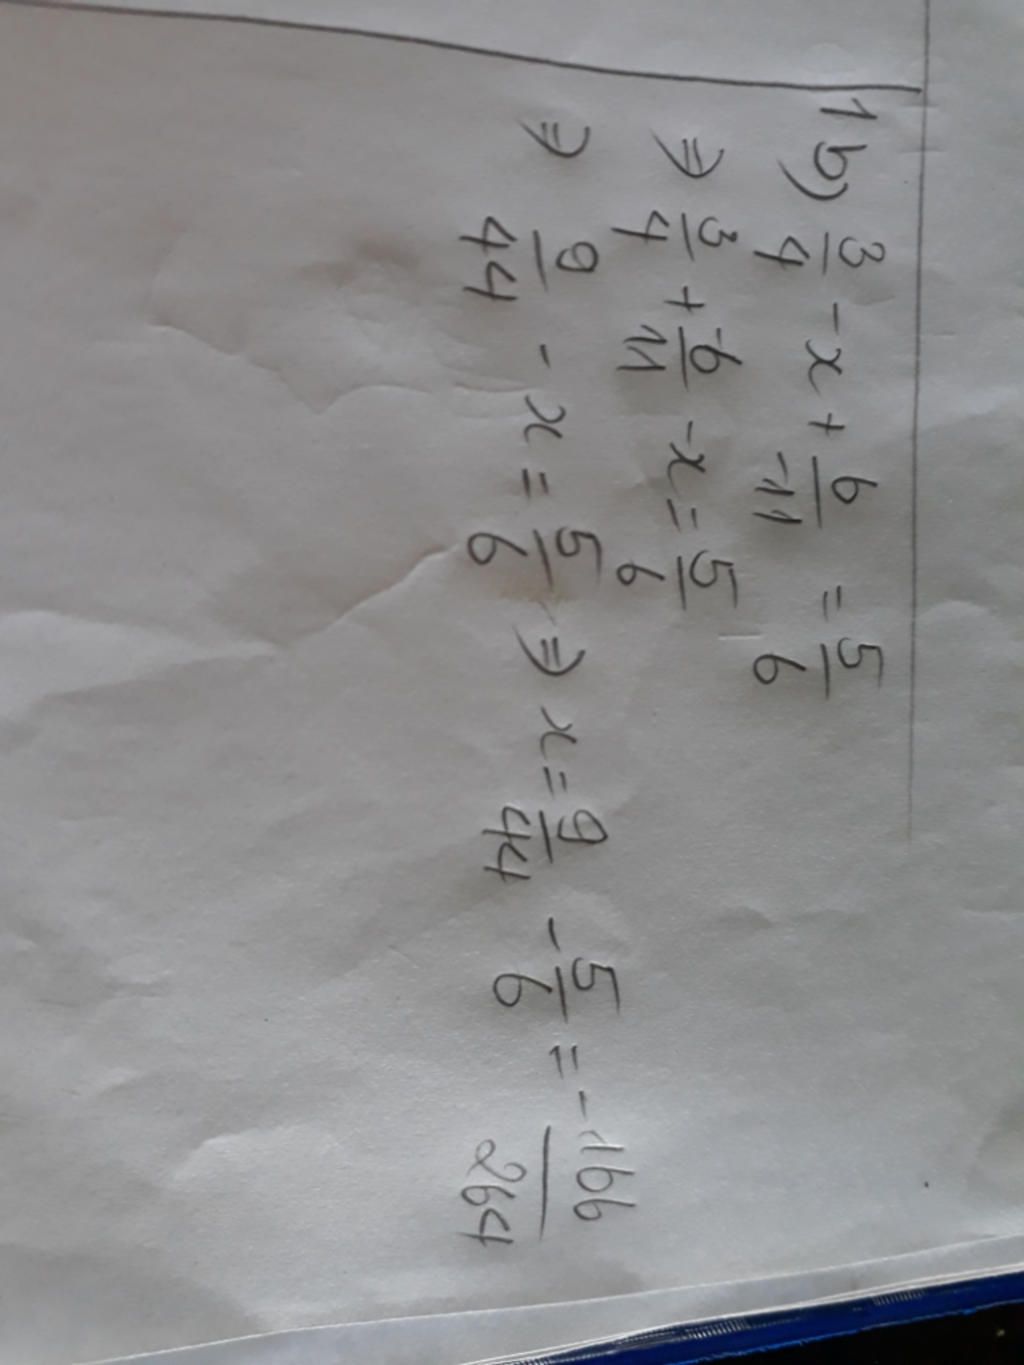 1b) 3/4 - x + 6/-11 = 5/6
⇒ 3/4 + -6/11 - x = 5/6
⇒ 9/44 - x = 5/6 ⇒ x = 9/44 - 5/6 = -166/264